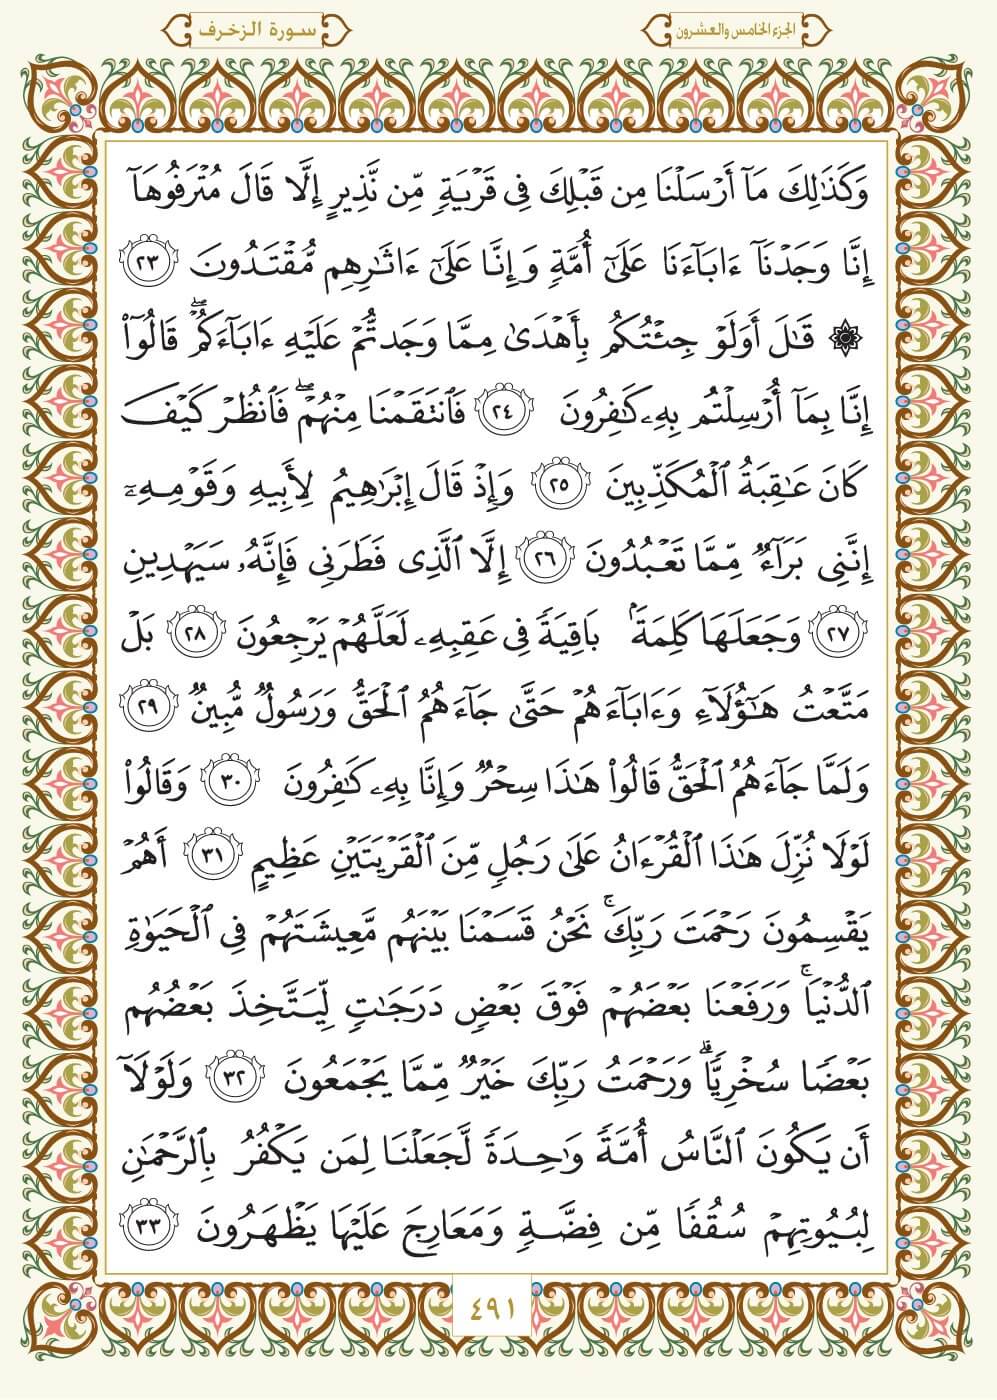 الجزء الخامس والعشرون
سورة الزخرف
وَكَذَٰلِكَ مَآ أَرۡسَلۡنَا مِن قَبۡلِكَ فِي قَرۡيَةٖ مِّن نَّذِيرٍ إِلَّا قَالَ مُتۡرَفُوهَآ
إِنَّا وَجَدۡنَآ ءَابَآءَنَا عَلَىٰٓ أُمَّةٖ وَإِنَّا عَلَىٰٓ ءَاثَٰرِهِم مُّقۡتَدُونَ ٢٣
۞ قَٰلَ أَوَلَوۡ جِئۡتُكُم بِأَهۡدَىٰ مِمَّا وَجَدتُّمۡ عَلَيۡهِ ءَابَآءَكُمۡۖ قَالُوٓاْ
إِنَّا بِمَآ أُرۡسِلۡتُم بِهِۦ كَٰفِرُونَ ٢٤ فَٱنتَقَمۡنَا مِنۡهُمۡۖ فَٱنظُرۡ كَيۡفَ
كَانَ عَٰقِبَةُ ٱلۡمُكَذِّبِينَ ٢٥ وَإِذۡ قَالَ إِبۡرَٰهِيمُ لِأَبِيهِ وَقَوۡمِهِۦٓ
إِنَّنِي بَرَآءٞ مِّمَّا تَعۡبُدُونَ ٢٦ إِلَّا ٱلَّذِي فَطَرَنِي فَإِنَّهُۥ سَيَهۡدِينِ
٢٧ وَجَعَلَهَا كَلِمَةَۢ بَاقِيَةٗ فِي عَقِبِهِۦ لَعَلَّهُمۡ يَرۡجِعُونَ ٢٨ بَلۡ
مَتَّعۡتُ هَٰٓؤُلَآءِ وَءَابَآءَهُمۡ حَتَّىٰ جَآءَهُمُ ٱلۡحَقُّ وَرَسُولٞ مُّبِينٞ ٢٩
وَلَمَّا جَآءَهُمُ ٱلۡحَقُّ قَالُواْ هَٰذَا سِحۡرٞ وَإِنَّا بِهِۦ كَٰفِرُونَ ٣٠ وَقَالُواْ
لَوۡلَا نُزِّلَ هَٰذَا ٱلۡقُرۡءَانُ عَلَىٰ رَجُلٖ مِّنَ ٱلۡقَرۡيَتَيۡنِ عَظِيمٍ ٣١ أَهُمۡ
يَقۡسِمُونَ رَحۡمَتَ رَبِّكَۚ نَحۡنُ قَسَمۡنَا بَيۡنَهُم مَّعِيشَتَهُمۡ فِي ٱلۡحَيَوٰةِ
ٱلدُّنۡيَاۚ وَرَفَعۡنَا بَعۡضَهُمۡ فَوۡقَ بَعۡضٖ دَرَجَٰتٖ لِّيَتَّخِذَ بَعۡضُهُم
بَعۡضٗا سُخۡرِيّٗاۗ وَرَحۡمَتُ رَبِّكَ خَيۡرٞ مِّمَّا يَجۡمَعُونَ ٣٢ وَلَوۡلَآ
أَن يَكُونَ ٱلنَّاسُ أُمَّةٗ وَٰحِدَةٗ لَّجَعَلۡنَا لِمَن يَكۡفُرُ بِٱلرَّحۡمَٰنِ
لِبُيُوتِهِمۡ سُقُفٗا مِّن فِضَّةٖ وَمَعَارِجَ عَلَيۡهَا يَظۡهَرُونَ ٣٣
٤٩١